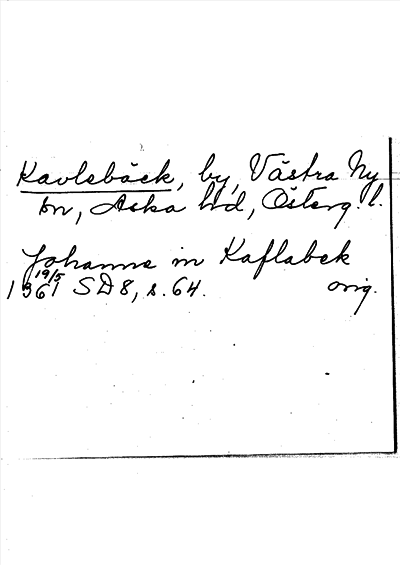 Kavlebäck, by, Västra Ny
sn, Aska hd, Österg. l.
Johanne in Kaflabek
19/5
1361 SD 8, s. 64. orig.